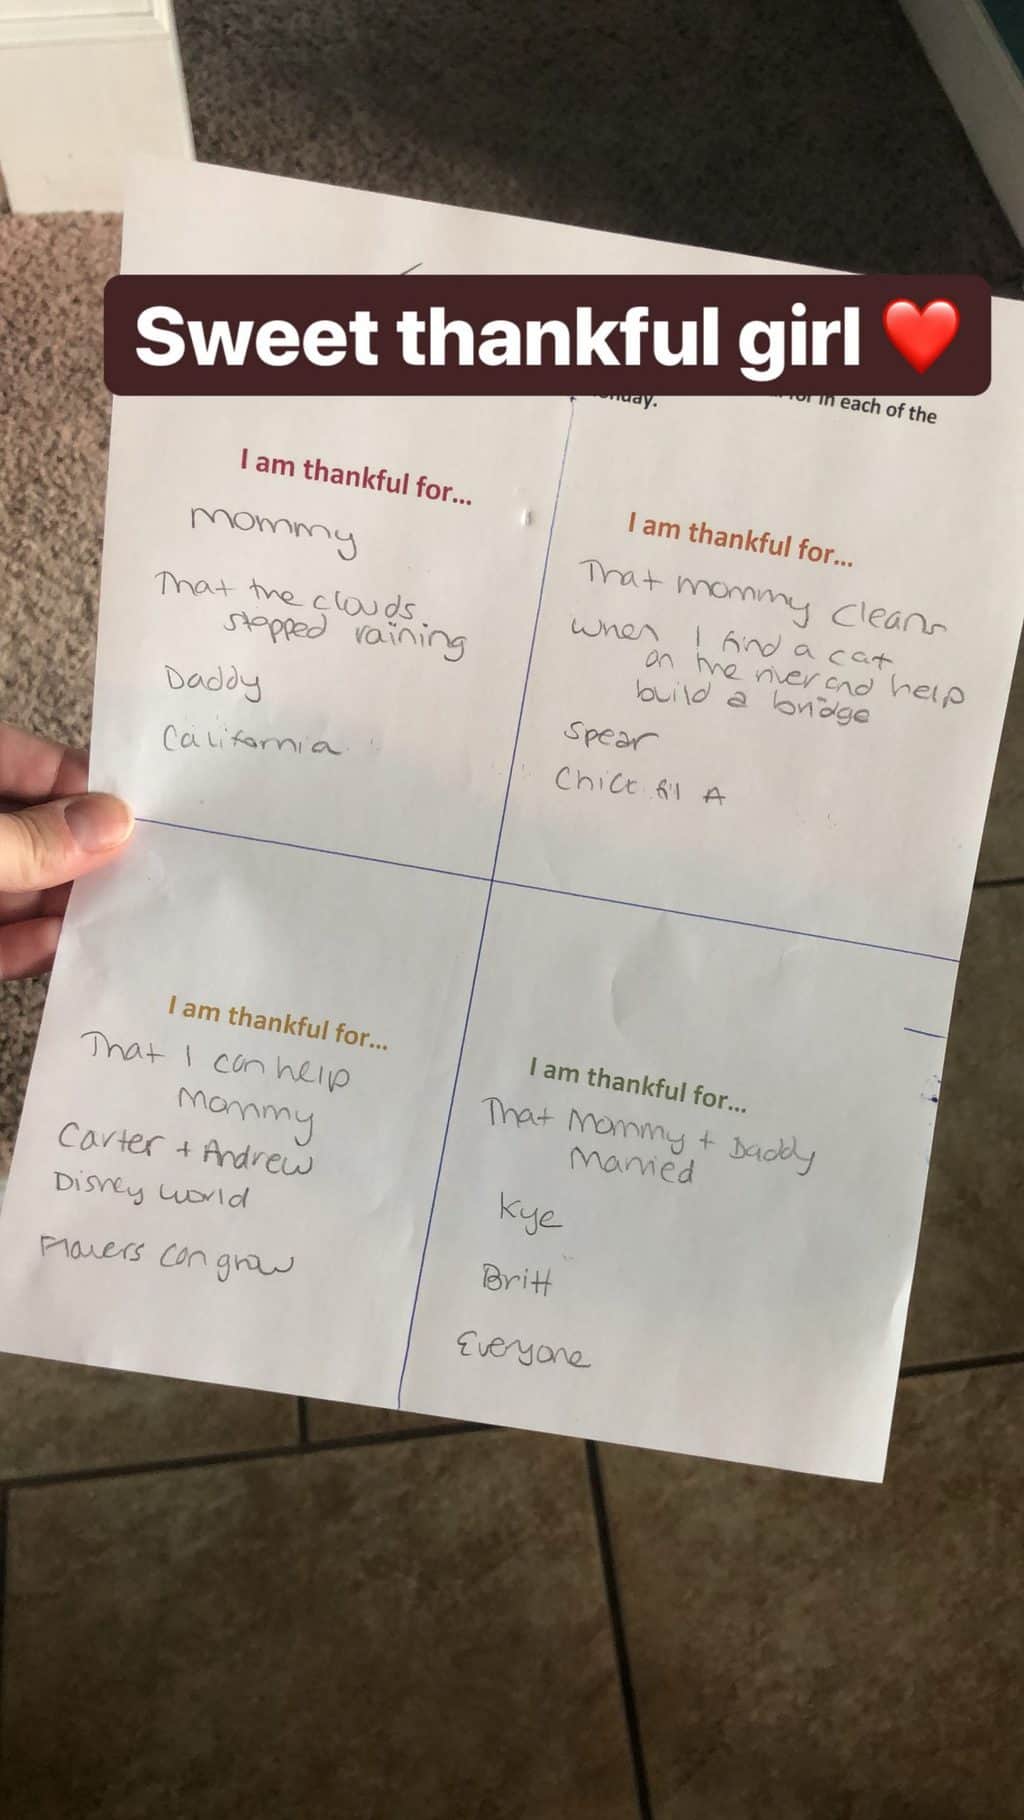 Sweet thankful girl ❤️
in each of the
I am thankful for...
Mommy
That the clouds
stopped raining
Daddy
California
I am thankful for...
That mommy cleans
When I find a cat
on the river and help
build a bridge
Spear
Chick fil A
I am thankful for...
That I can help
Mommy
Carter + Andrew
Disney world
Flowers can grow
I am thankful for...
That Mommy + Daddy
Married
Kye
Britt
Everyone